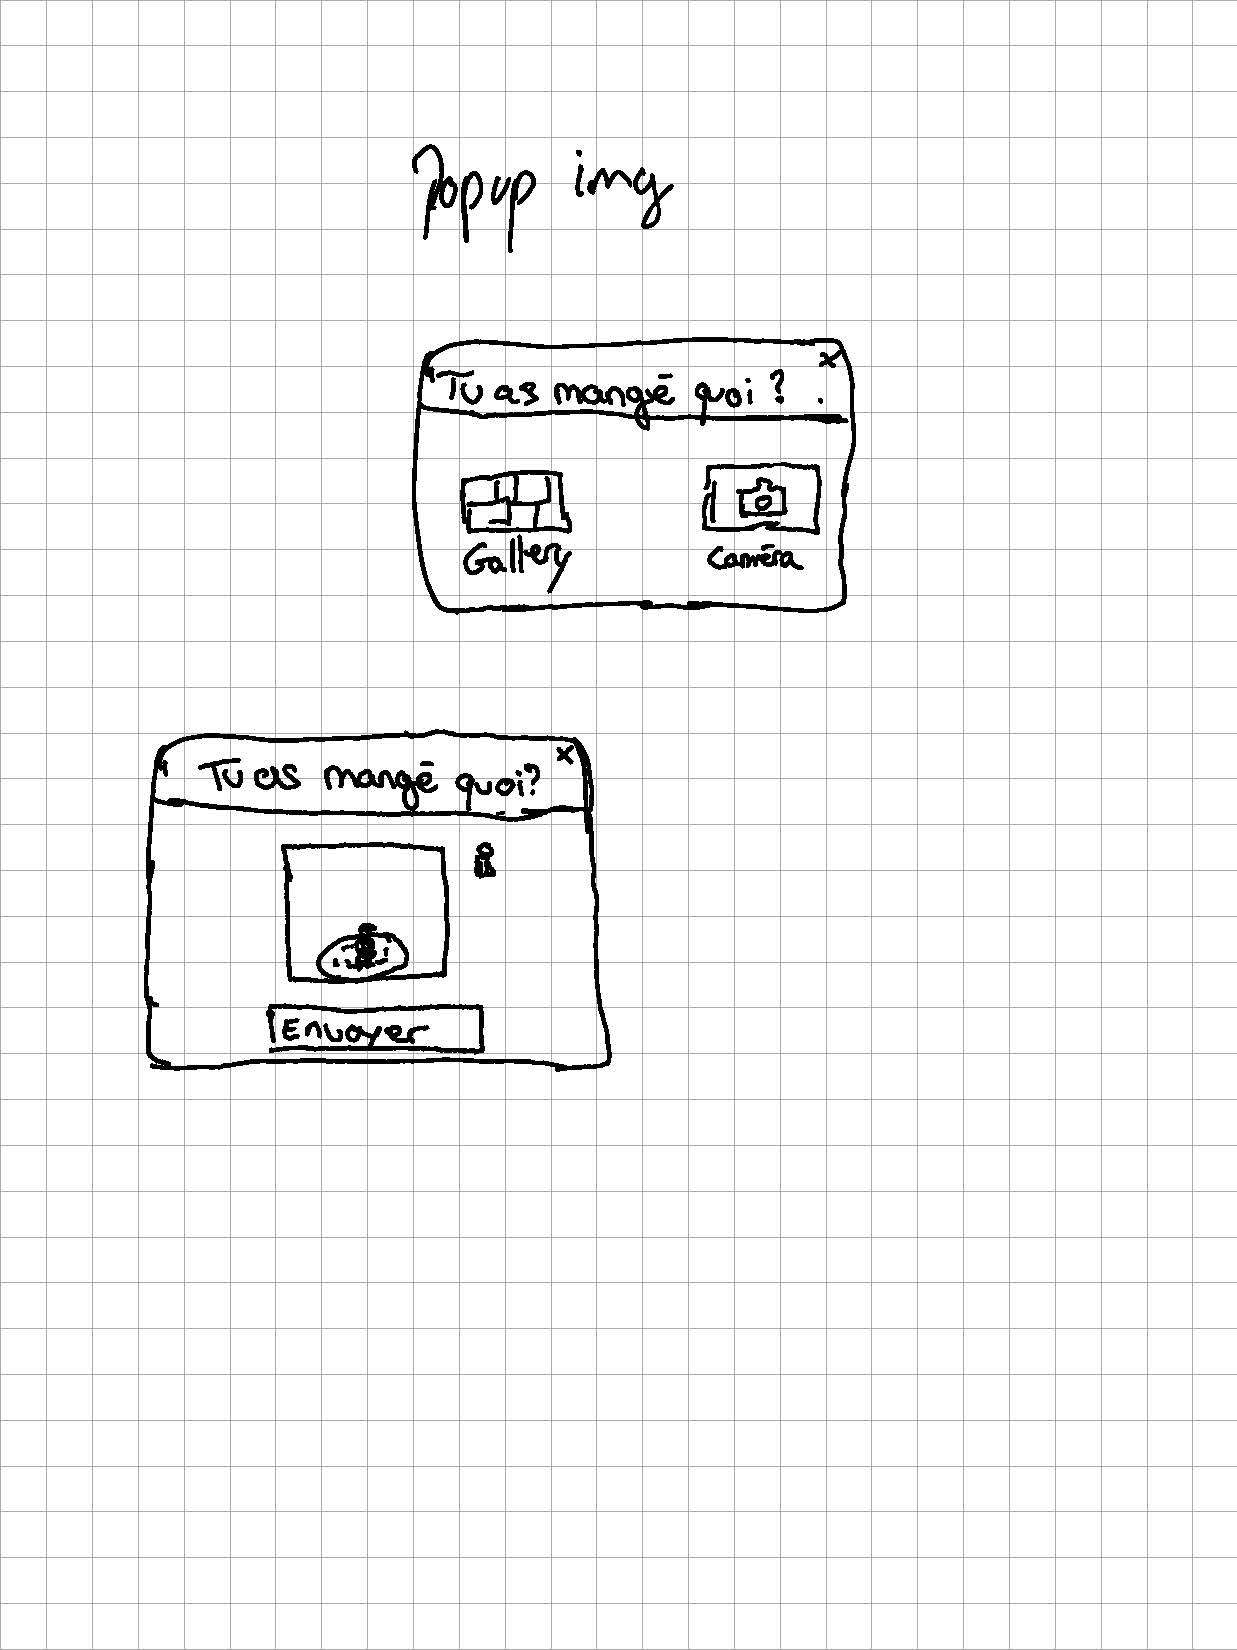 Popup img
Tu as mangé quoi ?
x
Gallery
Caméra
Tu as mangé quoi?
x
Envoyer